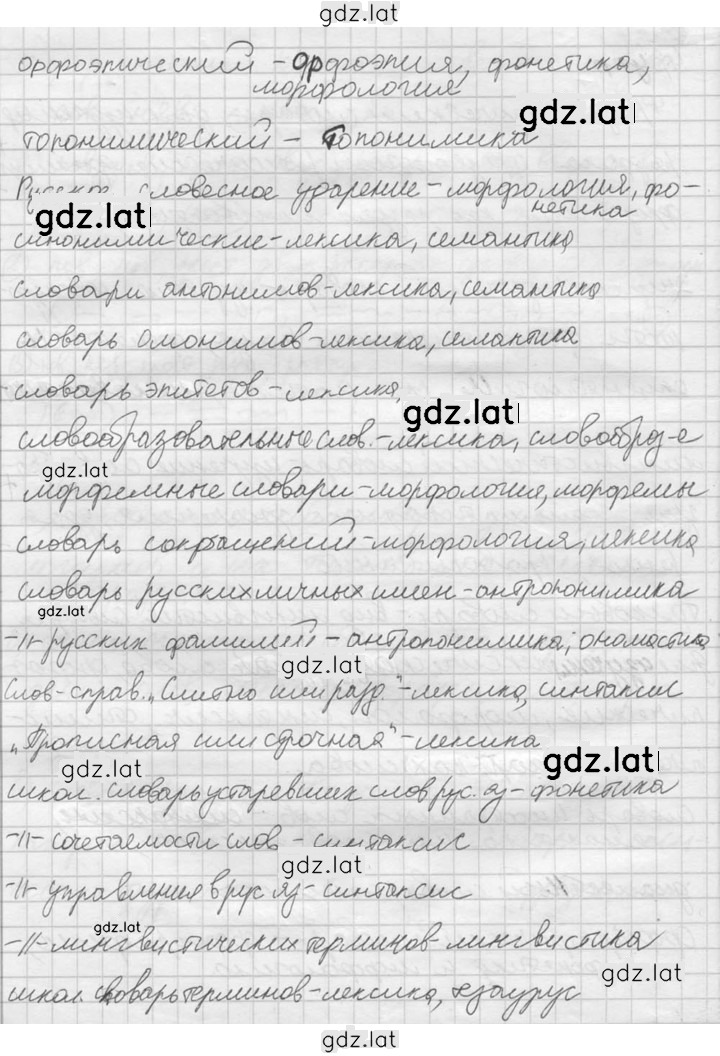 gdz.lat
орфоэпический – орфоэпия, фонетика,
морфология
gdz.lat
топонимический – Топонимика
словесное ударение – морфология, фо-
нетика
gdz.lat
синонимические – лексика, семантика
словари антонимов – лексика, семантика
словарь омонимов – лексика, семантика
словарь эпитетов – лексика,
gdz.lat
словообразовательные слов. – лексика, словообраз-е
gdz.lat
морфемные словари – морфология, морфемы
словарь сокращений – морфология, лексика
словарь русских личных имен – антропонимика
gdz.lat
-||- русских фамилий – антропонимика, ономастика
gdz.lat
Слов-справ. „Слитно или разд." – лексика, синтаксис
„Прописная или строчная" – лексика
gdz.lat
gdz.lat
школ. словарь устаревших слов рус. яз – фонетика
-||- сочетаемости слов – синтаксис
gdz.lat
-||- управления в рус яз – синтаксис
gdz.lat
-||- лингвистических терминов – лингвистика
gdz.lat
школ. словарь терминов – лексика, тезаурус
gdz.lat